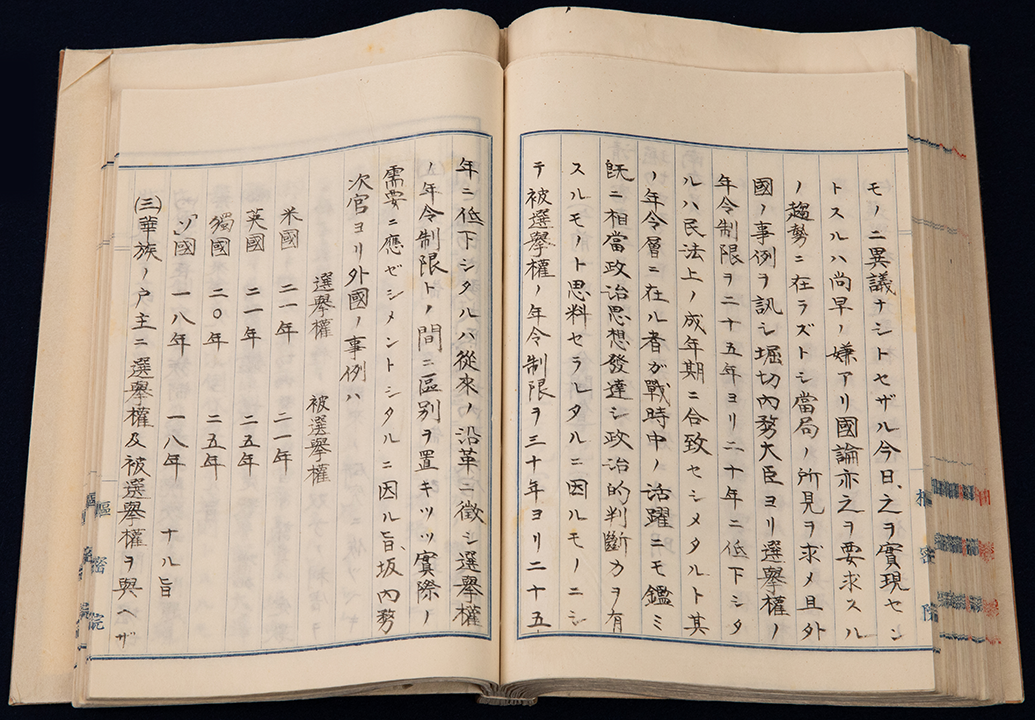 モノニ異議ナシトセザル今日、之ヲ實現セン
トスルハ尚早ノ嫌アリ國論亦之ヲ要求スル
ノ趨勢ニ在ラズトシ當局ノ所見ヲ求メ且外
國ノ事例ヲ訊シ堀切內務大臣ヨリ選擧權ノ
年令制限ヲ二十五年ヨリ二十年ニ低下シタ
ルハ民法上ノ成年期ニ合致セシメタルト其
ノ年令層ニ在ル者ガ戰時中ノ活躍ニモ鑑ミ
旣ニ相當政治思想發達シ政治的判斷力ヲ有
スルモノト思料セラルタルニ因ルモノニシ
テ被選擧權ノ年令制限ヲ三十年ヨリ二十五
年ニ低下シタルハ從來ノ沿革ニ徵シ選擧權
ノ年令制限トノ間ニ區別ヲ置キツツ實際ノ
需要ニ應ゼシメントシタルニ因ル旨、坂內務
次官ヨリ外國ノ事例ハ
選擧權 被選擧權
米國 二一年 二一年
英國 二一年 二五年
獨國 二〇年 二五年
「ソ」國 一八年 一八年
ナル旨
(三)華族ノ戶主ニ選擧權及被選擧權ヲ與ヘザ
樞密院
樞密院